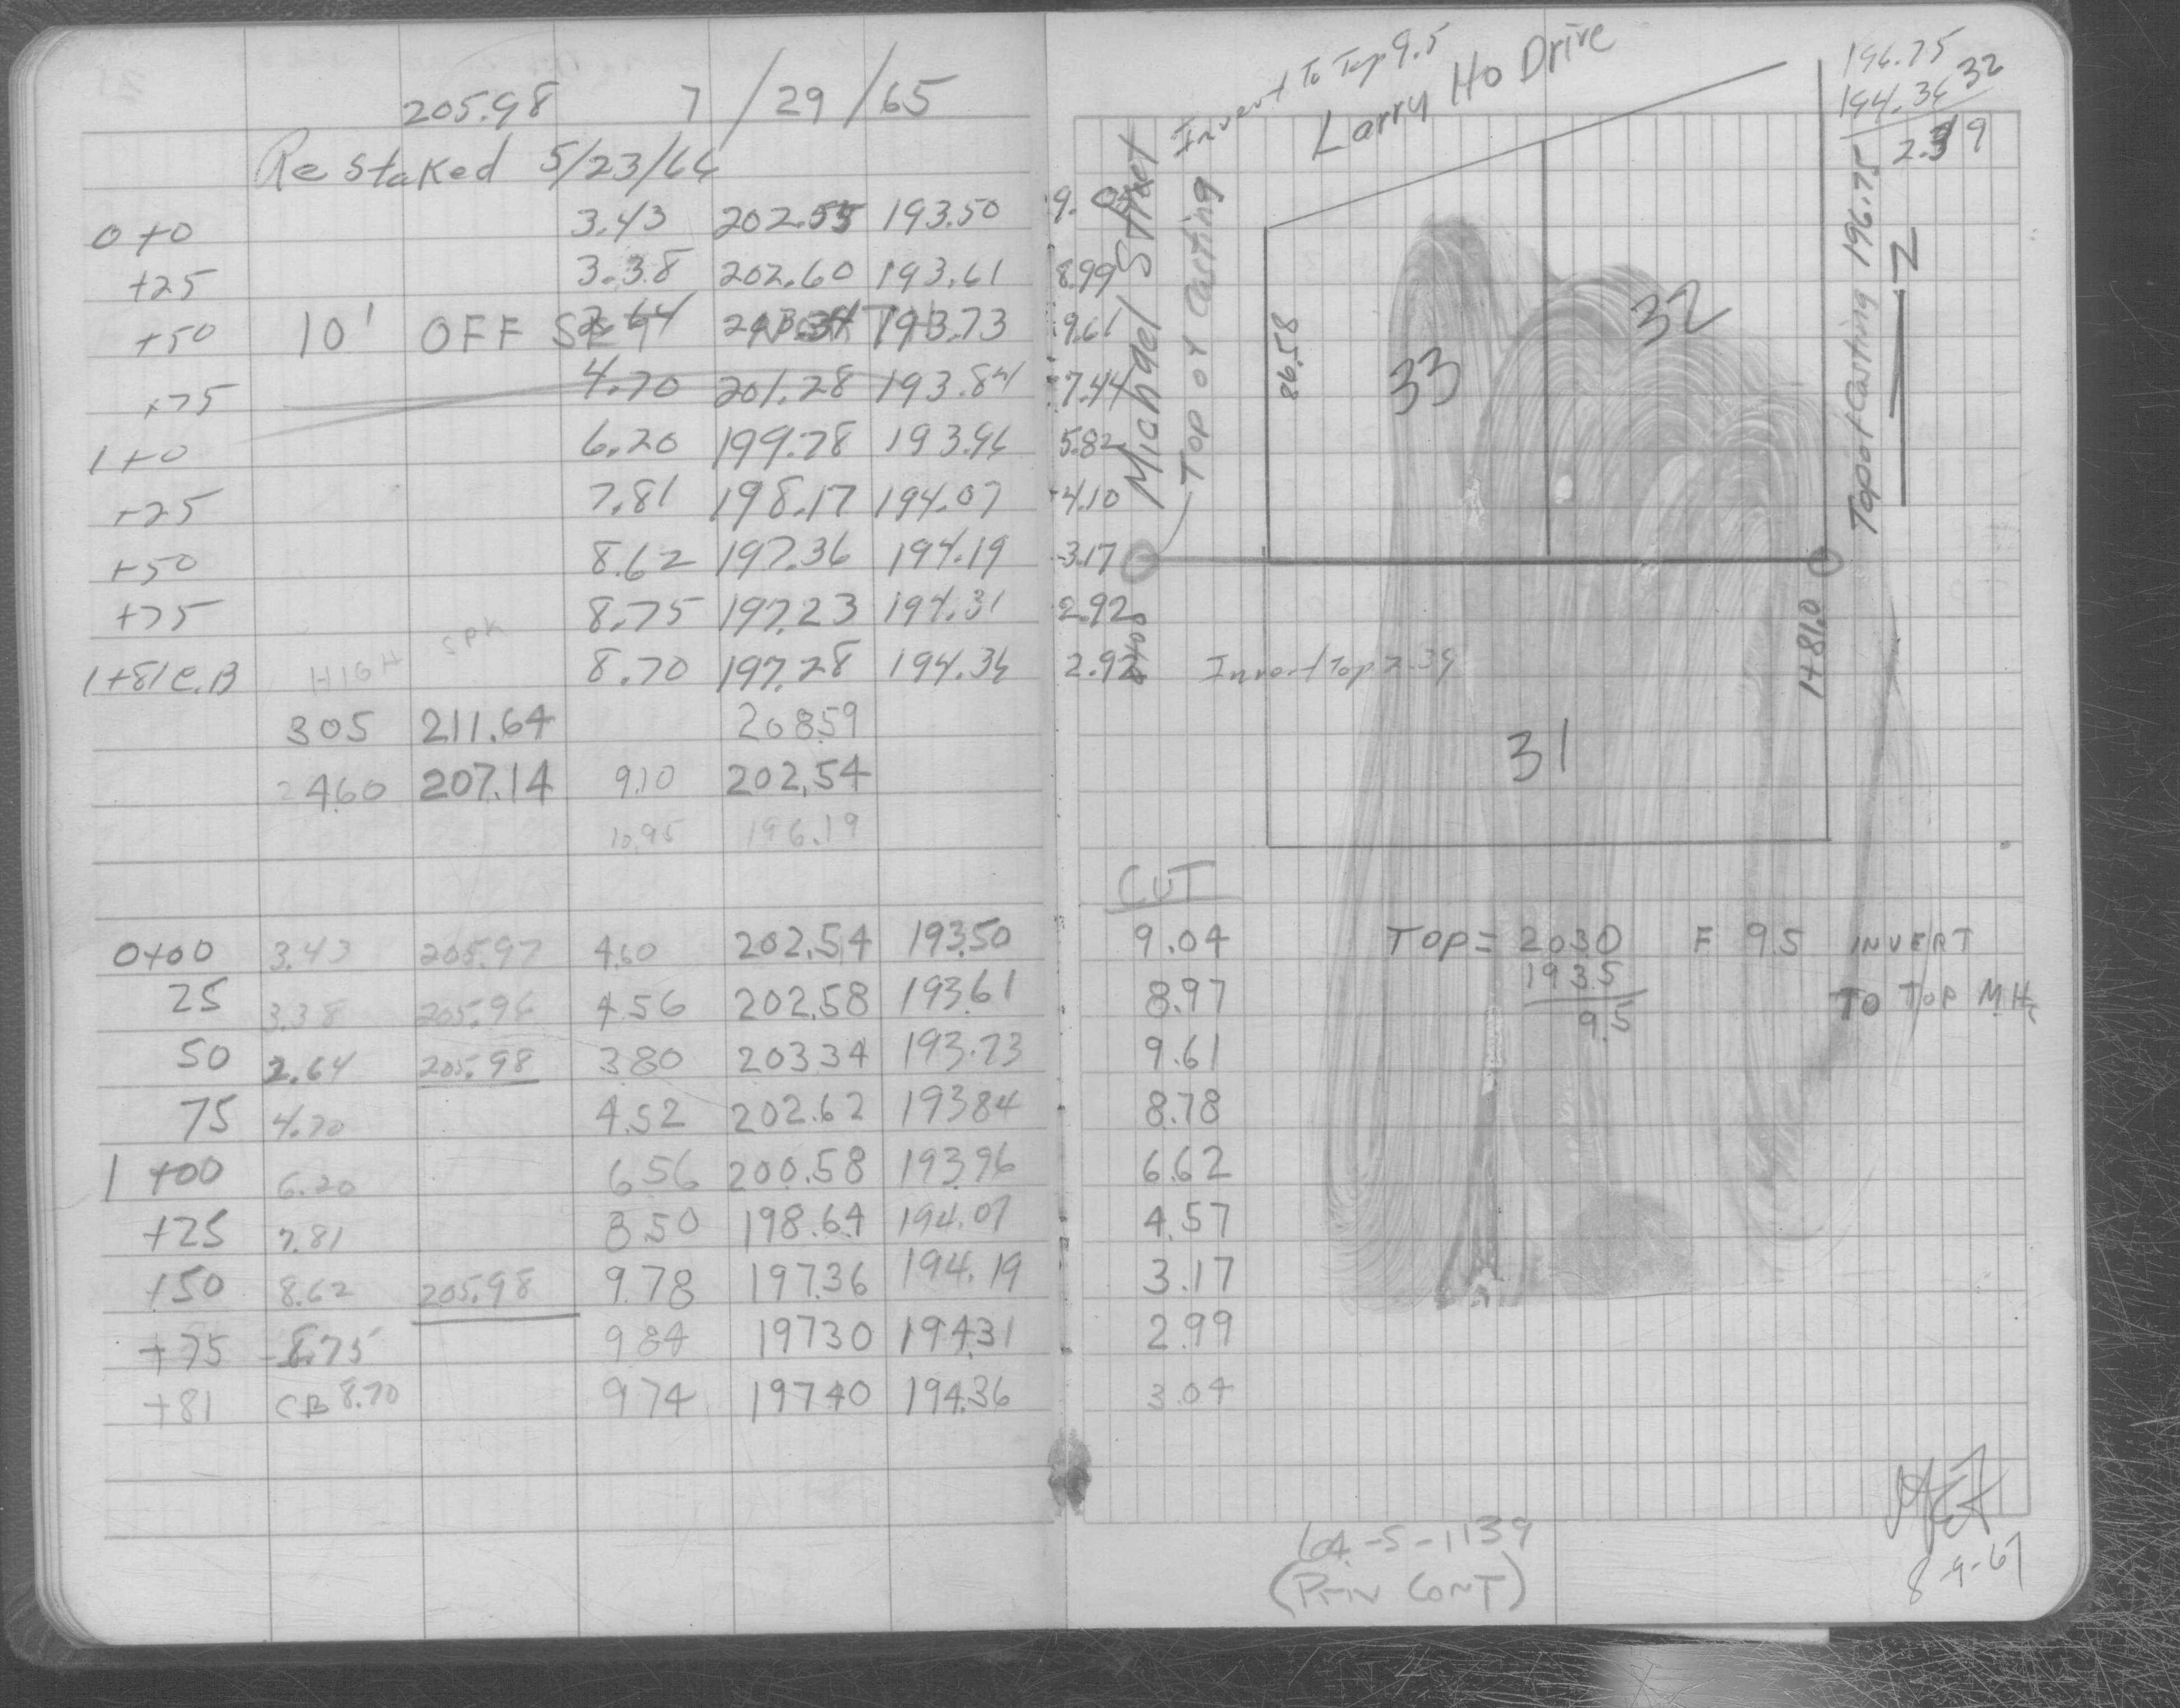 205.98 7/29/65
Re Staked 5/23/66
0+0 3.43 202.55 193.50 9.05
+25 3.38 202.60 193.61 8.99
+50 10' OFF SET 2.64 203.34 193.73 9.61
+75 4.70 201.28 193.84 7.44
1+0 6.20 199.78 193.96 5.82
+25 7.81 198.17 194.07 4.10
+50 8.62 197.36 194.19 3.17
+75 8.75 197.23 194.31 2.92
1+81 C.B HIGH SPK 8.70 197.28 194.36 2.92
305 211.64 20859
460 207.14 910 202.54
10.95 196.19
0+00 3.43 205.97 4.60 202.54 193.50
25 3.38 205.96 456 202.58 193.61
50 2.64 205.98 380 20334 193.73
75 4.70 4.52 202.62 19384
1+00 6.20 656 200.58 193.96
+25 7.81 850 198.64 194.07
+50 8.62 205.98 978 197.36 194.19
+75 8.75 984 19730 194.31
+81 CB 8.70 974 19740 194.36
Invert To Top 9.5
Larry Ho Drive
196.75
194.36 32
2.39
Michael Street
Top of Casting
86.58
33
32
Top of Casting 196.75
Z
0+00
1+81.0
Invert Top 2.39
31
CUT
9.04
8.97
9.61
8.78
6.62
4.57
3.17
2.99
3.04
TOP = 2030 F 95 INVERT
1935 TO TOP M.H.
9.5
64-5-1139
(PRIV CONT)
8-9-67